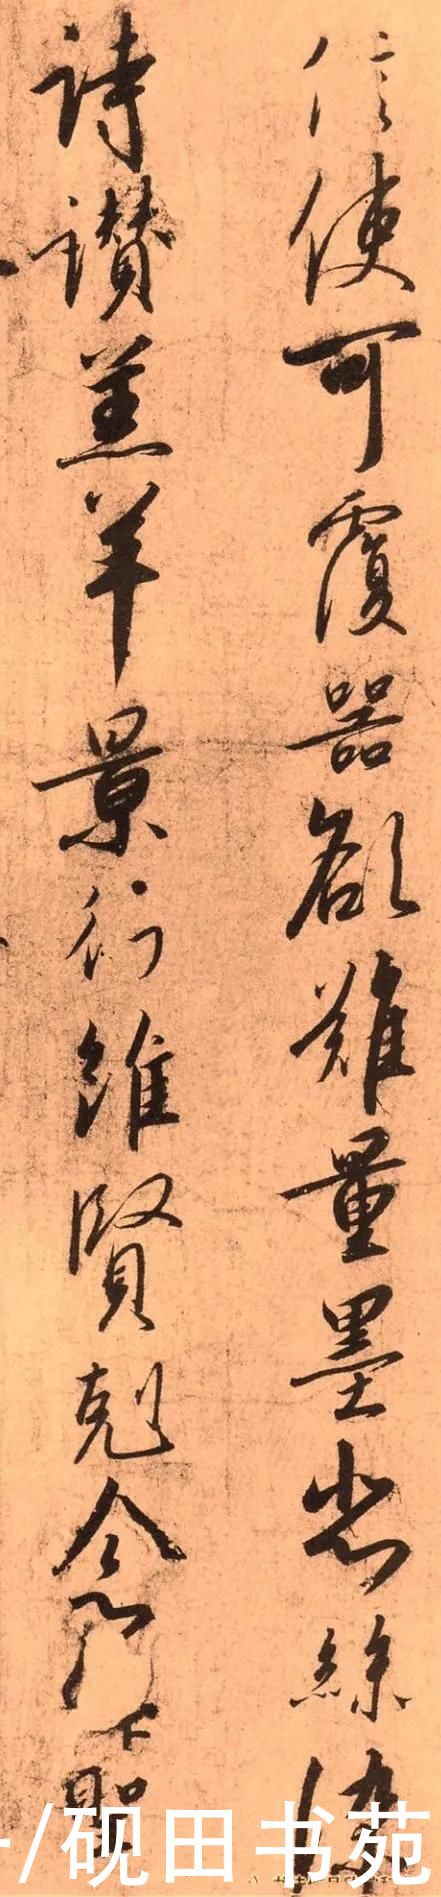 信使可覆器欲難量墨悲絲染
詩讚羔羊景行維賢剋念作聖
/砚田书苑